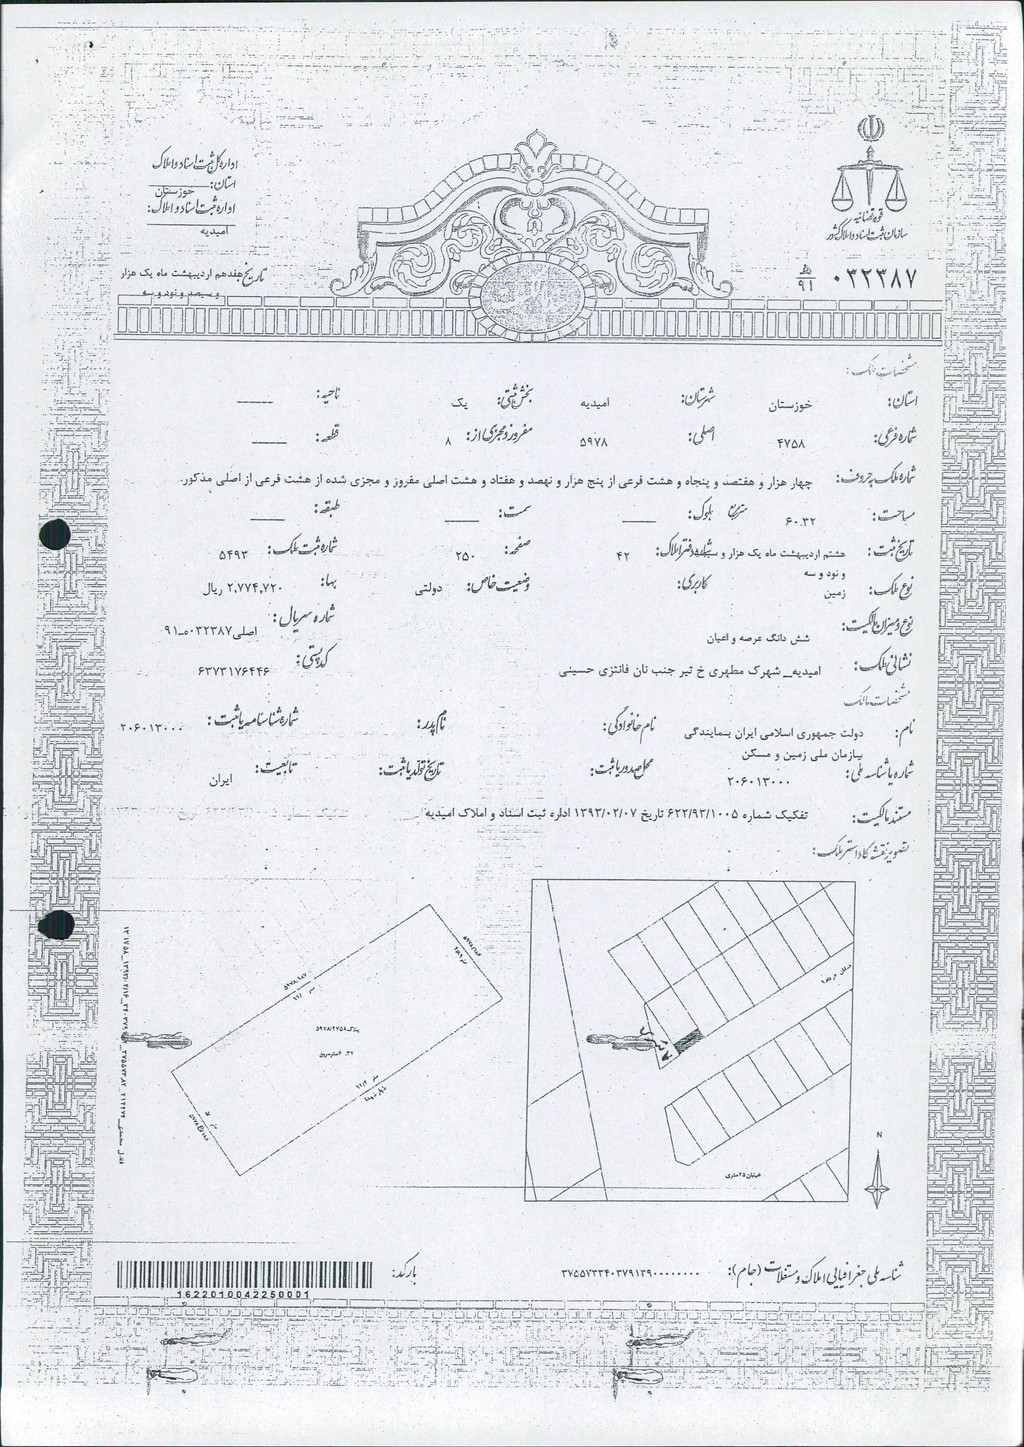 قوه قضائیه
سازمان ثبت اسناد و املاک کشور
۰۳۲۳۸۷ ه/۹۱
اداره کل ثبت اسناد و املاک
استان: خوزستان
اداره ثبت اسناد و املاک:
امیدیه
تاریخ هفدهم اردیبهشت ماه یک هزار
و سیصد و نود و سه
مشخصات ملک:
استان: خوزستان شهرستان: امیدیه بخش ثبتی: یک ناحیه: ____
شماره فرعی: ۴۷۵۸ اصلی: ۵۹۷۸ مفروز و مجزی از: ۸ قطعه: ____
شماره ملک به حروف: چهار هزار و هفتصد و پنجاه و هشت فرعی از پنج هزار و نهصد و هفتاد و هشت اصلی مفروز و مجزی شده از هشت فرعی از اصلی مذکور.
مساحت: ۶۰.۳۲ مترمربع بلوک: ____ سمت: ____ طبقه: ____
تاریخ ثبت: هشتم اردیبهشت ماه یک هزار و سیصد شماره دفتر املاک: ۴۲ صفحه: ۲۵۰ شماره ثبت ملک: ۵۴۹۳
و نود و سه
نوع ملک: زمین کاربری: وضعیت خاص: دولتی بها: ۲,۷۷۴,۷۲۰ ریال
نوع و میزان مالکیت: شش دانگ عرصه و اعیان شماره سریال: اصلی۰۳۲۳۸۷ه‍ـ۹۱
نشانی ملک: امیدیه_ شهرک مطهری خ تیر جنب نان فانتزی حسینی کدپستی: ۶۳۷۳۱۷۶۴۴۶
مشخصات مالک
نام: دولت جمهوری اسلامی ایران بنمایندگی نام خانوادگی: نام پدر: شماره شناسنامه یا ثبت: ۲۰۶۰۱۳۰۰۰
سازمان ملی زمین و مسکن
شماره یا شناسه ملی: ۲۰۶۰۱۳۰۰۰ محل صدور یا ثبت: تاریخ تولد یا ثبت: تابعیت: ایران
مستند مالکیت: تفکیک شماره ۶۲۲/۹۳/۱۰۰۵ تاریخ ۱۳۹۳/۰۲/۰۷ اداره ثبت اسناد و املاک امیدیه
تصویر نقشه کاداستر ملک:
پلاک۵۹۷۸/۴۷۵۸
خیابان ۲۵متری
N
شناسه ملی جغرافیایی املاک و مستغلات (جام): ۳۷۵۵۷۳۳۴۰۳۷۹۱۳۹۰۰۰۰۰۰۰۰
بارکد:
1622010042250001